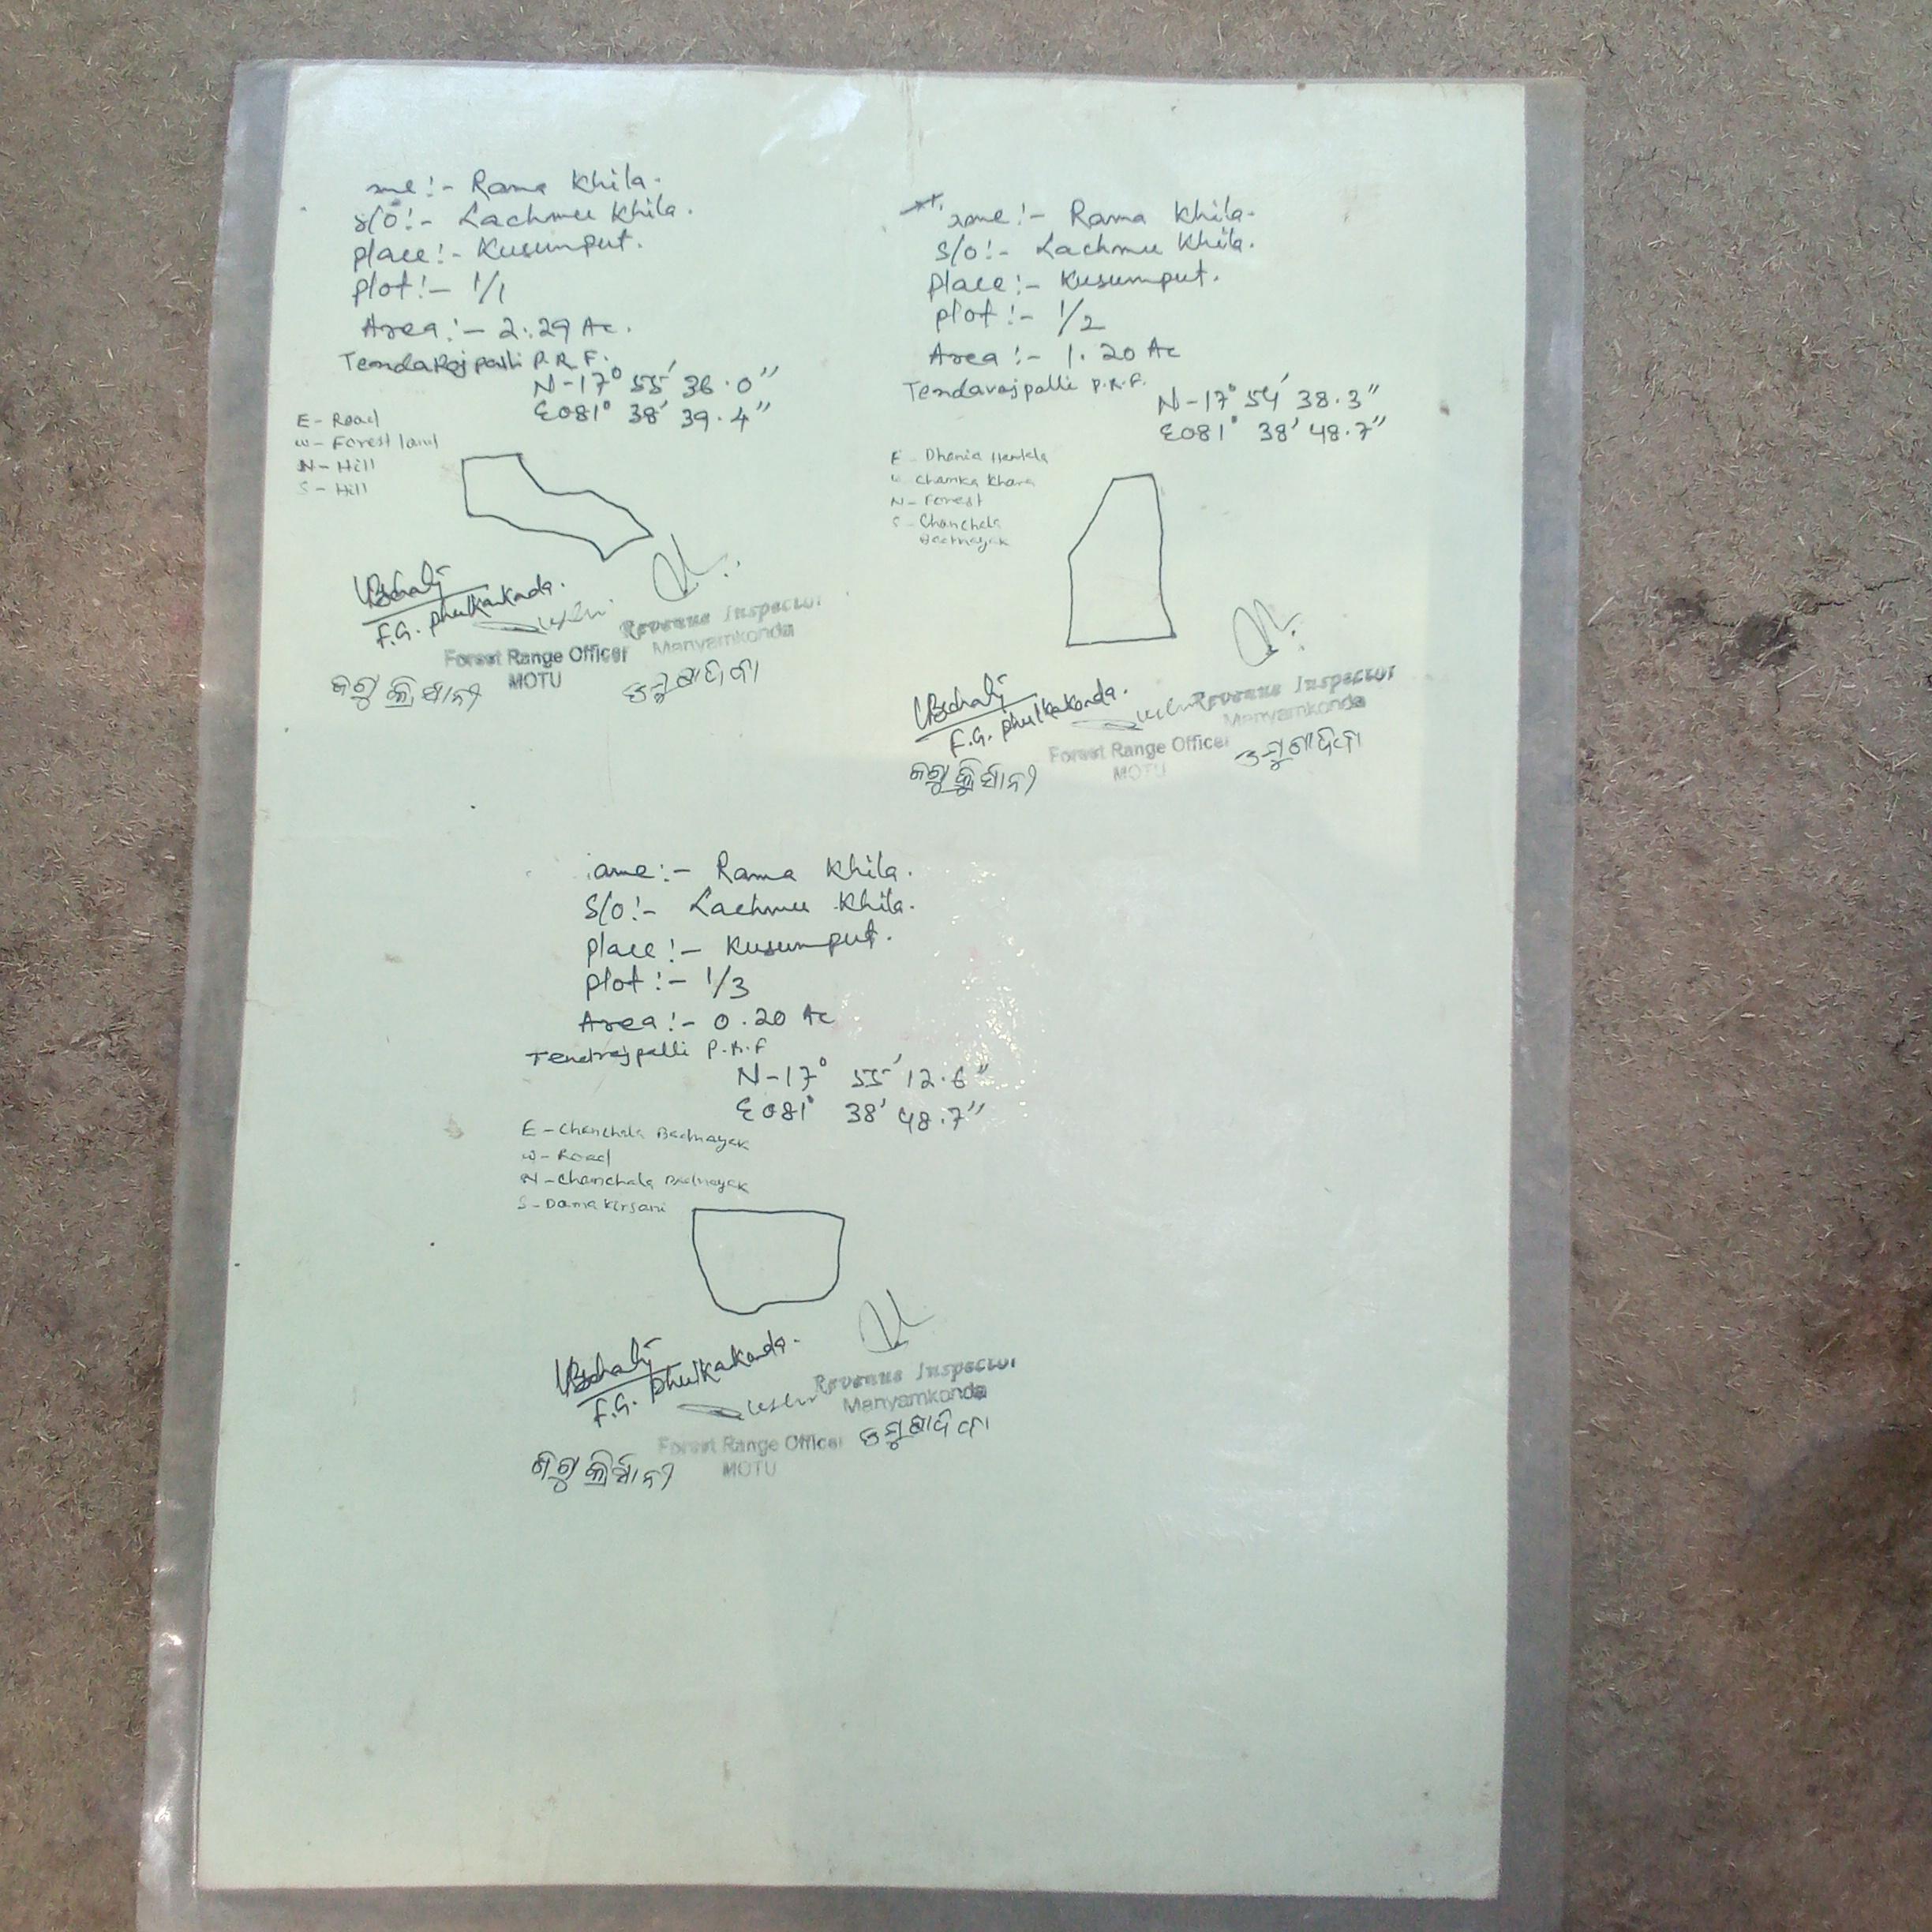 ame:- Rama Khila.
S/o:- Lachmu Khila.
place:- Kusumput.
plot:- 1/1
Area:- 2.29 Ac.
Tendarajpalli P.R.F.
N-17° 55' 36.0"
E081° 38' 39.4"
E- Road
W- Forest land
N- Hill
S- Hill
F.G. Phulkakonda.
Revenue Inspector
Manyamkonda
Forest Range Officer
MOTU
ame:- Rama Khila.
S/o:- Lachmu Khila.
Place:- Kusumput.
plot:- 1/2
Area:- 1.20 Ac
Tendarajpalli P.R.F.
N-17° 54' 38.3"
E081° 38' 48.7"
E- Dhania Hantala
W- Chamka Khara
N- Forest
S- Chanchala
Badnayak
F.G. Phulkakonda.
Revenue Inspector
Manyamkonda
Forest Range Officer
MOTU
ame:- Rama Khila.
S/o:- Lachmu Khila.
place:- Kusumput.
plot:- 1/3
Area:- 0.20 Ac
Tendrajpalli P.R.F
N-17° 55' 12.6"
E081° 38' 48.7"
E- Chanchala Badnayak
W- Road
N- Chanchala Badnayak
S- Dama Kirsani
F.G. Phulkakonda.
Revenue Inspector
Manyamkonda
Forest Range Officer
MOTU